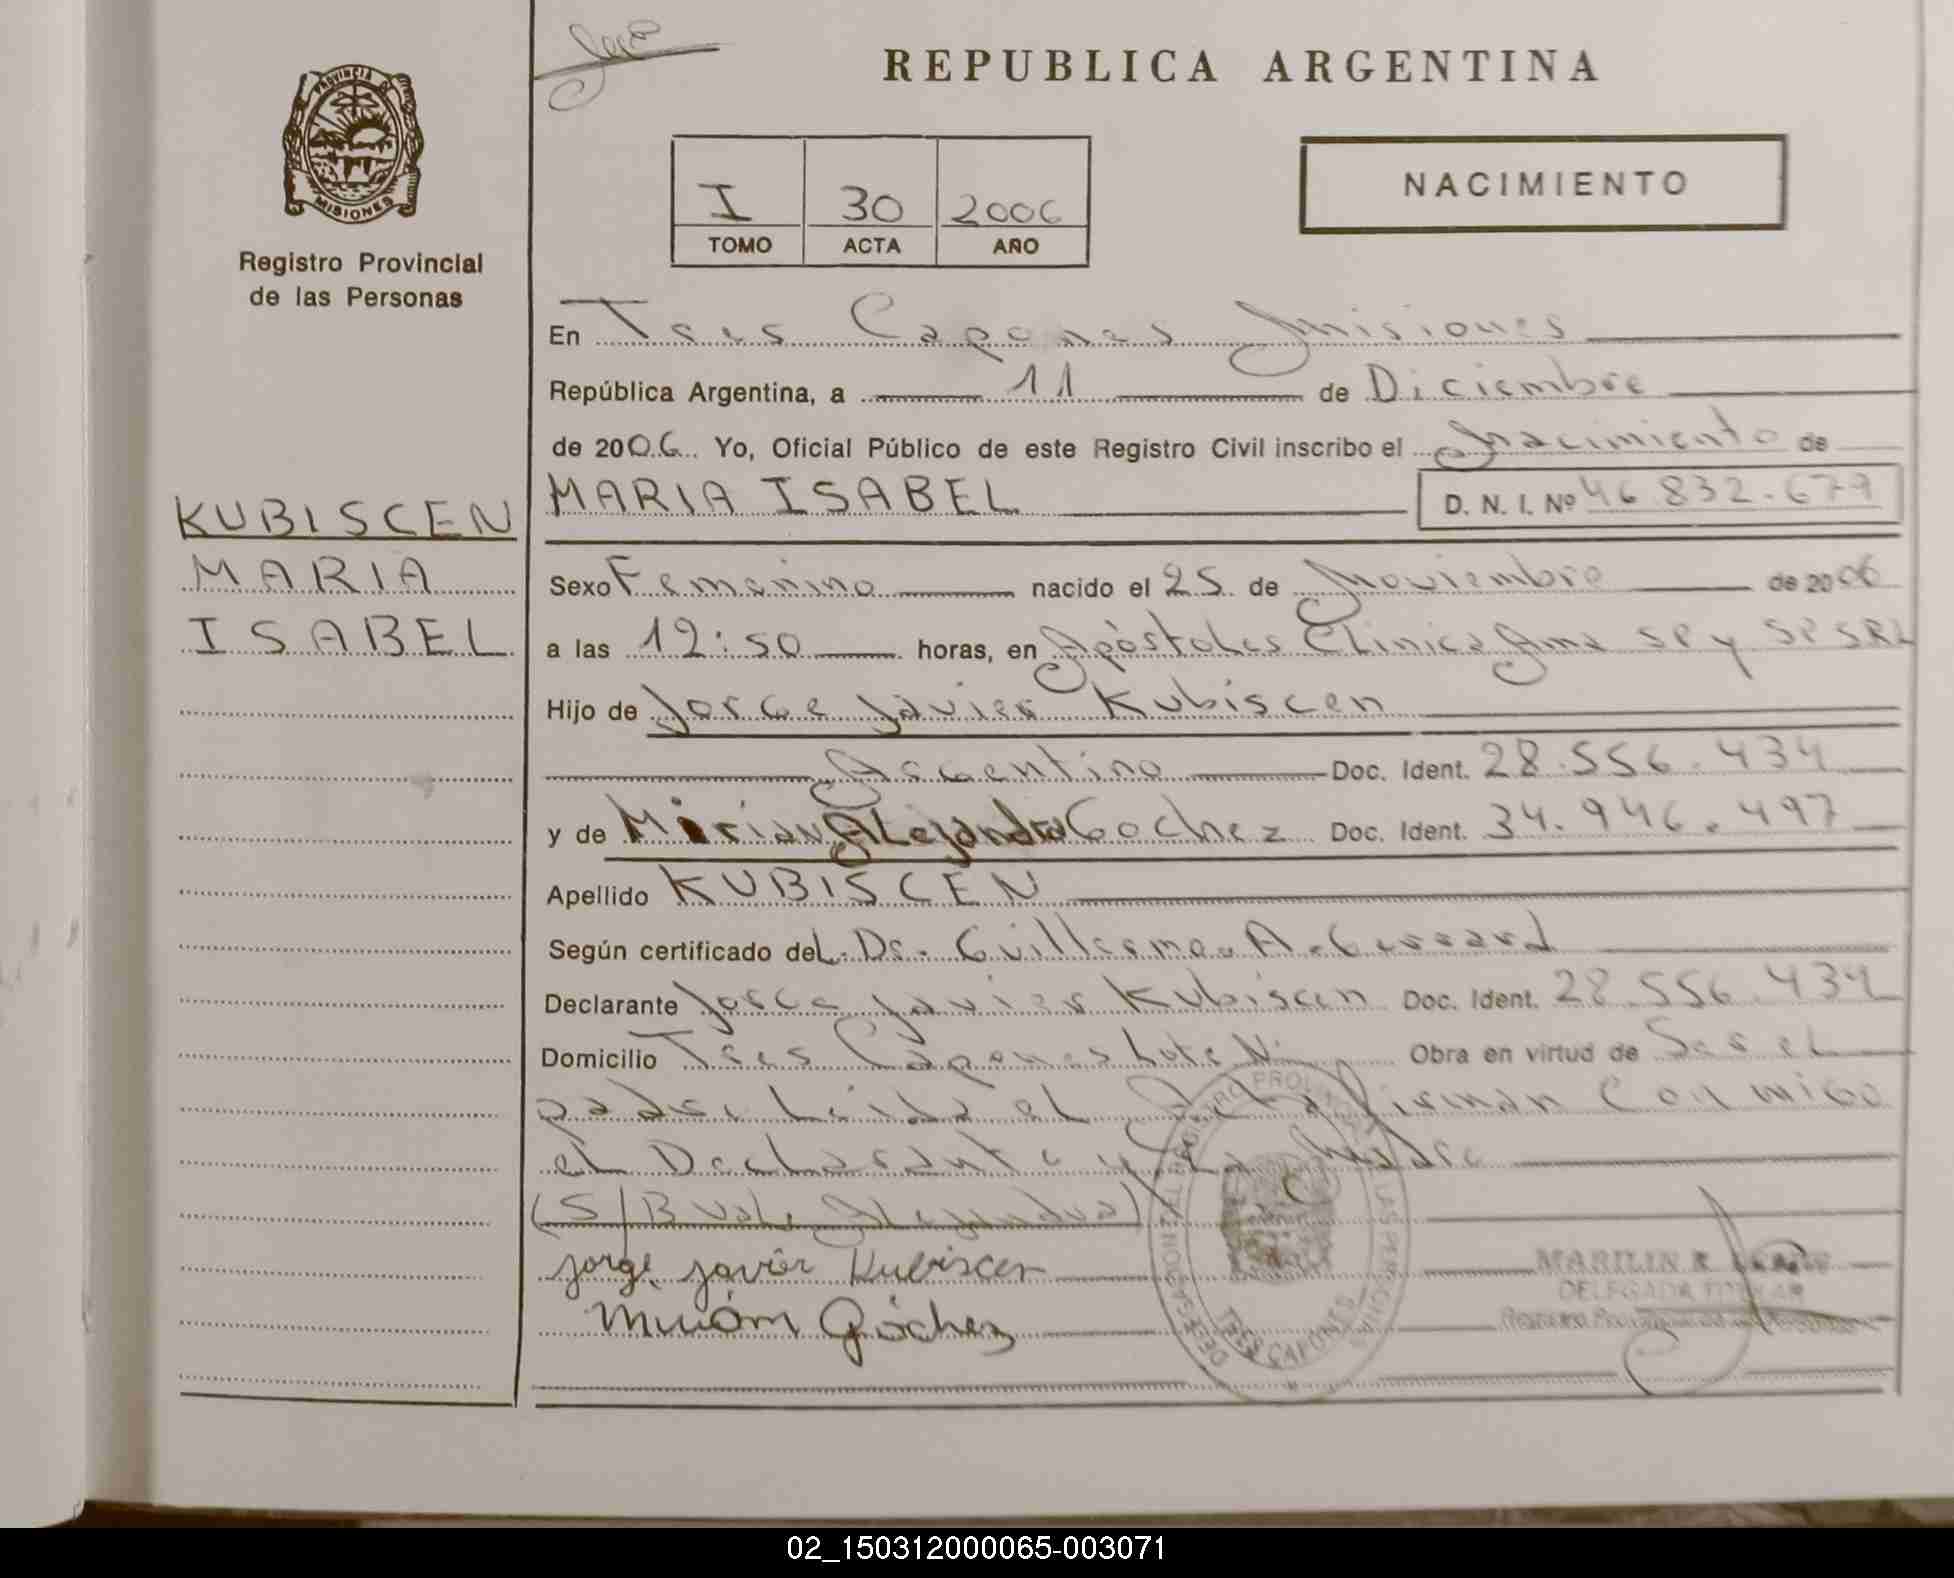 REPUBLICA ARGENTINA
PROVINCIA DE
MISIONES
Registro Provincial
de las Personas
I 30 2006
TOMO ACTA AÑO
NACIMIENTO
En Tres Capones Misiones
República Argentina, a 11 de Diciembre
de 2006. Yo, Oficial Público de este Registro Civil inscribo el Nacimiento de
KUBISCEN
MARIA
ISABEL
MARIA ISABEL D. N. I. Nº 46.832.679
Sexo Femenino nacido el 25 de Noviembre de 2006
a las 12:50 horas, en Apóstoles Clinica Ama SP y SP SRL
Hijo de Jorge Javier Kubiscen
Argentino Doc. Ident. 28.556.434
y de Mirian Alejandra Gochez Doc. Ident. 34.946.497
Apellido KUBISCEN
Según certificado del Dr. Guillermo A.
Declarante Jorge Javier Kubiscen Doc. Ident. 28.556.434
Domicilio Tres Capones Lote Obra en virtud de Ser el
padre Leida el Acta Firman Conmigo
el Declarante y La Madre
(S/B Vale Alejandra)
Jorge Javier Kubiscen
Miriam Góchez
MARILIN R.
DELEGADA TITULAR
TRES CAPONES
02_150312000065-003071